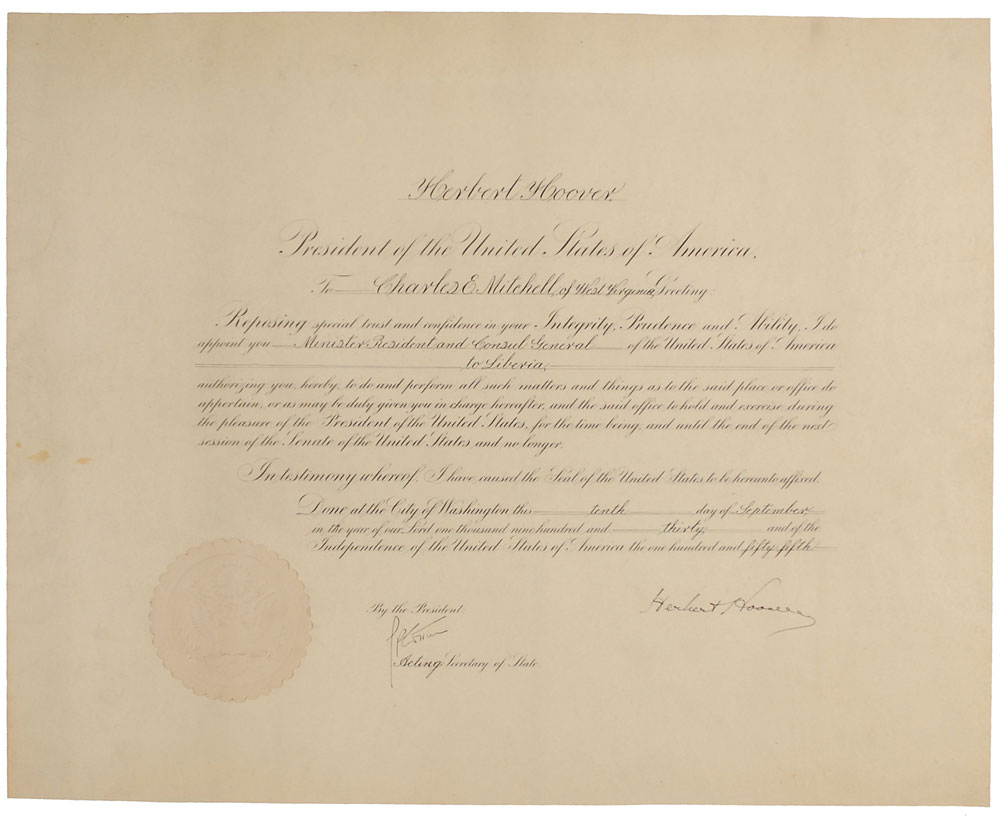 Herbert Hoover
President of the United States of America.
To Charles E. Mitchell, of West Virginia, Greeting:
Reposing special trust and confidence in your Integrity, Prudence and Ability, I do
appoint you Minister Resident and Consul General of the United States of America
to Liberia,
authorizing you, hereby, to do and perform all such matters and things as to the said place or office do
appertain, or as may be duly given you in charge hereafter, and the said office to hold and exercise during
the pleasure of the President of the United States, for the time being, and until the end of the next
session of the Senate of the United States and no longer.
In testimony whereof, I have caused the Seal of the United States to be hereunto affixed.
Done at the City of Washington this tenth day of September
in the year of our Lord one thousand nine hundred and thirty, and of the
Independence of the United States of America the one hundred and fifty fifth
Herbert Hoover
By the President:
Acting Secretary of State